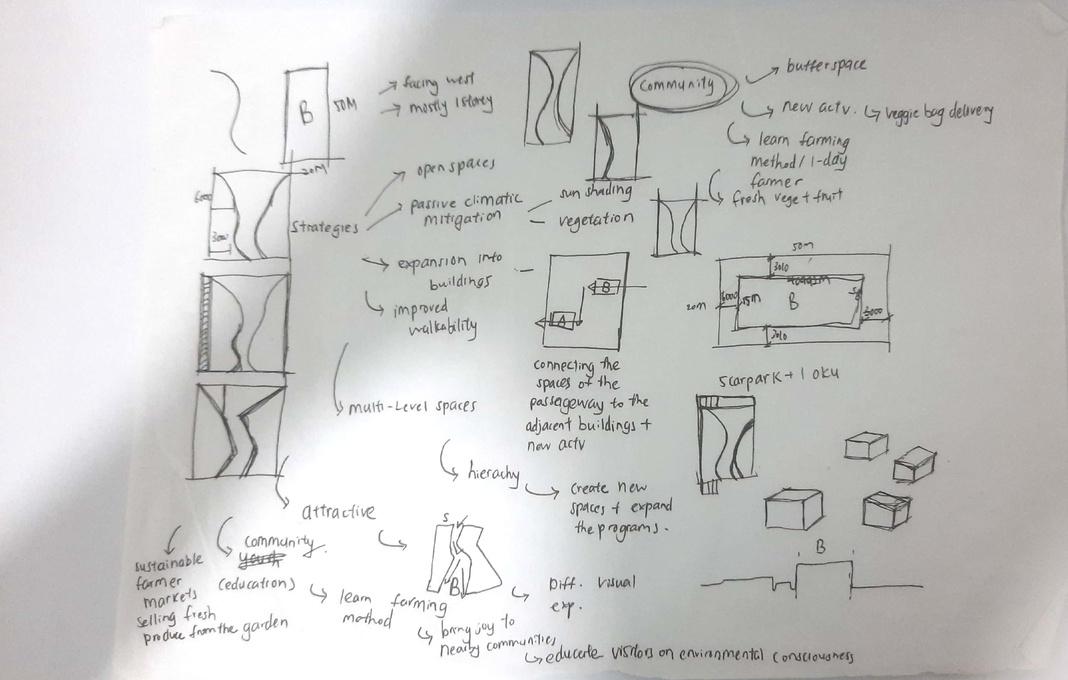 B
50M
20M
→ facing west
→ mostly 1 storey
Community
bufferspace
new actv. ↳ veggie bag delivery
learn farming
method/ 1-day
farmer
fresh vege + fruit
6000
3000
Strategies
open spaces
passive climatic
mitigation
sun shading
vegetation
expansion into
buildings
improved
walkability
B
A
connecting the
spaces of the
passageway to the
adjacent buildings +
new actv
50m
3010
20M
6000
15M
B
6000
3010
5 carpark + 1 OKU
multi-Level spaces
hierachy
create new
spaces + expand
the programs.
attractive
sustainable
farmer
markets
selling fresh
produce from the garden
community
youth
(educations)
learn farming
method
S
B
Diff. visual
exp.
bring joy to
nearby communities
educate visitors on environmental consciousness
B